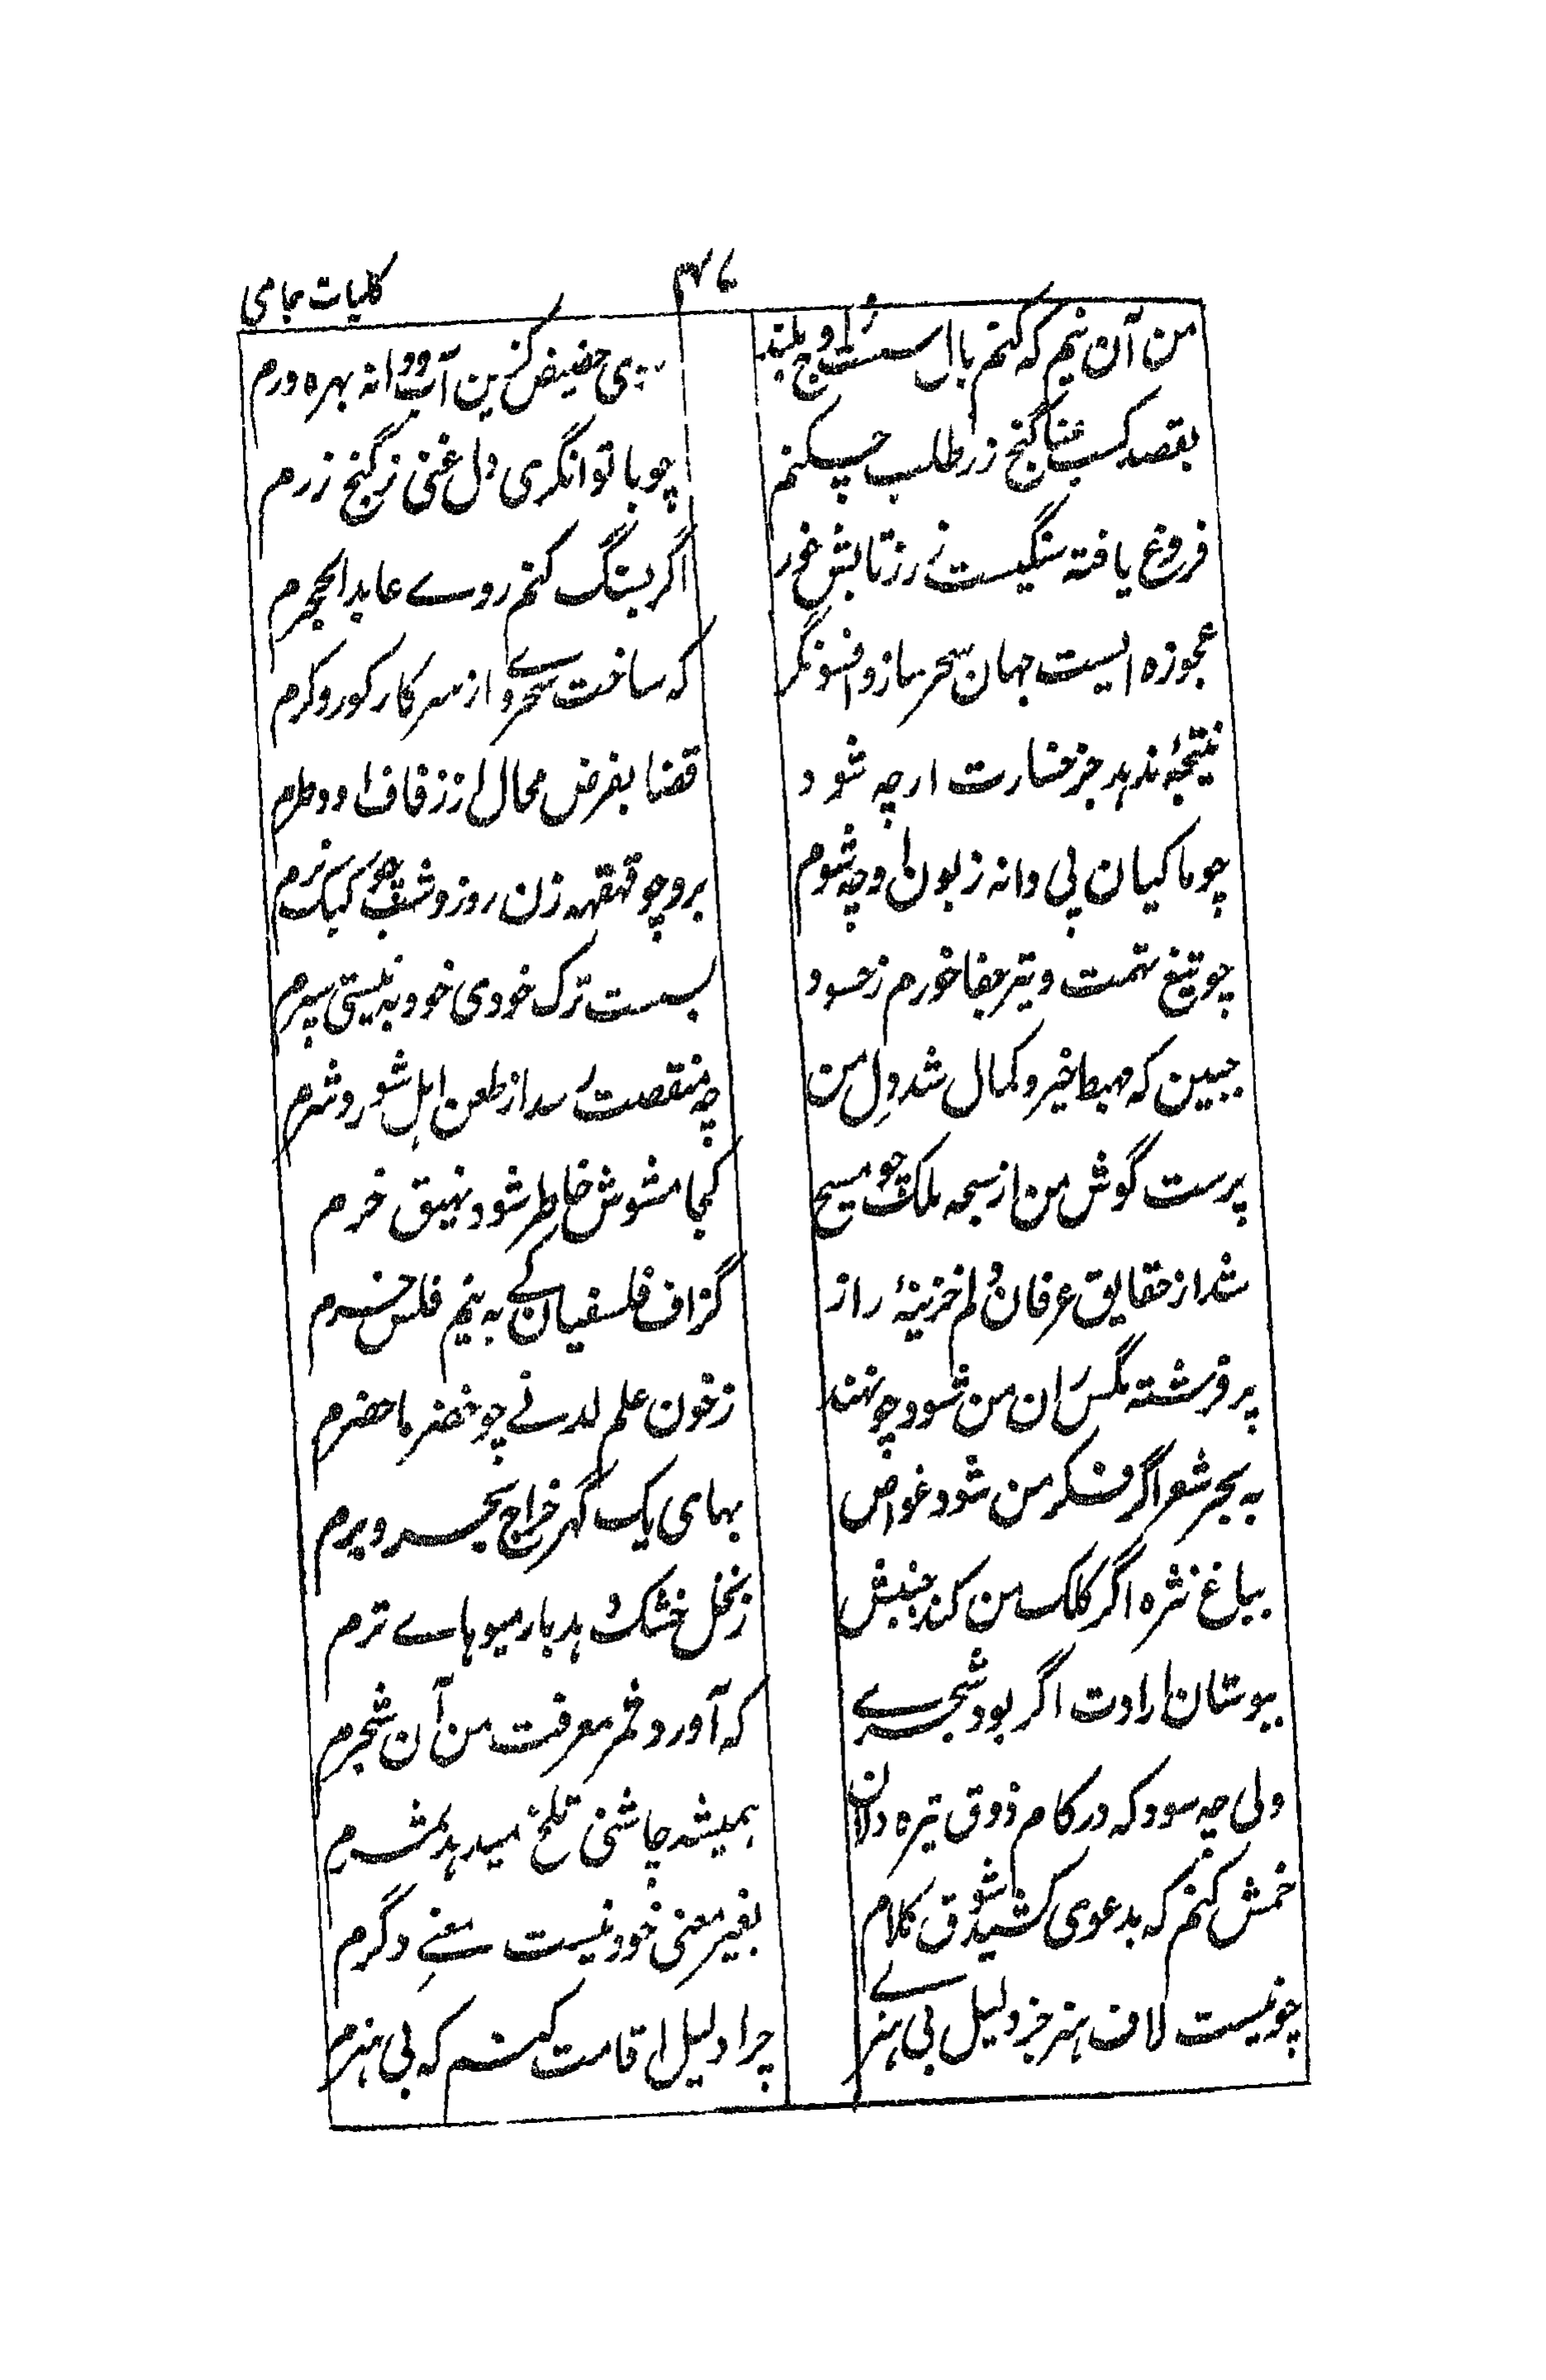 ۴۷ کلیات جامی
من آن نیم که کنم باا ست اوج بلند
ی حضیض کزین آب و دانه بهره ورم
بقصد کسب غنا گنج زر طلب چکنم
چو با توانگری دل غنی ز گنج زرم
فروغ یافته سنگیست زر ز تابش خور
اگر بسنگ کنم روے عابد الحجرم
عجوزه ایست جهان سحر ساز و افسونگر
که ساخت سحر وے از سر کار کور و کرم
نتیجهٔ ندهد جز خسارت ار چه شود
قضا بفرض محال از زفاف او وطرم
چو ماکیان پی دانه زبون او چه شوم
برو چو قهقهه زن روز و شب چو کبک نرم
چو تیغ تهمت و تیر جفا خورم ز حسود
بسست ترک خودی خود به نیستی سپرم
جبین که مهبط خیر و کمال شد دل من
چه منقصت رسد از طعن اهل شور و شرم
پرست گوش من از سبحه ملک چو مسیح
کجا مشوش خاطر شود نهیق خرم
شد از حقایق عرفان دلم خزینهٔ راز
گزاف فلسفیان کے به نیم فلس خرم
پر فرشته مگس ران من شود چو نهند
ز خون علم لدنے چو خضر ما حضرم
به بحر شعر اگر فکر من شود غواص
بهای یک گهر خراج بحر و برم
بباغ نثره اگر کلک من کند جنبش
ز نخل خشک دهد بار میوهاے ترم
ببوستان ارادت اگر بود شجرے
که آورد ثمر معرفت من آن شجرم
ولی چه سود که در کام ذوق تیره دلان
همیشه چاشنی تلخ میدهد ثمرم
خمش کنم که بدعوی کشید شوق کلام
بغیر معنی خود نیست معنے دگرم
چو نیست لاف هنر جز دلیل بی هنرے
چرا دلیل اقامت کنم که بی هنرم